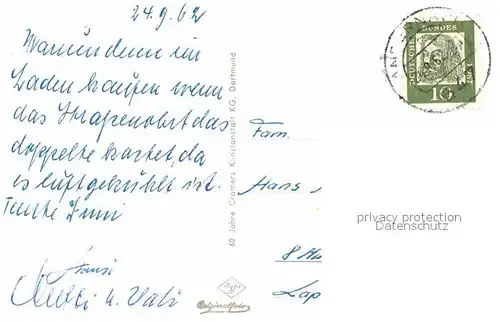 24.9.62
Warum denn im
Laden kaufen wenn
das Straßenobst das
doppelte kostet, da
es luftgekühlt ist.
Tante
Hansi
u. Vati
60 Jahre Cramers Kunstanstalt KG. Dortmund
Fam.
Hans
8
Agfa
Originalfoto
DEUTSCHE BUNDES
10
privacy protection
Datenschutz